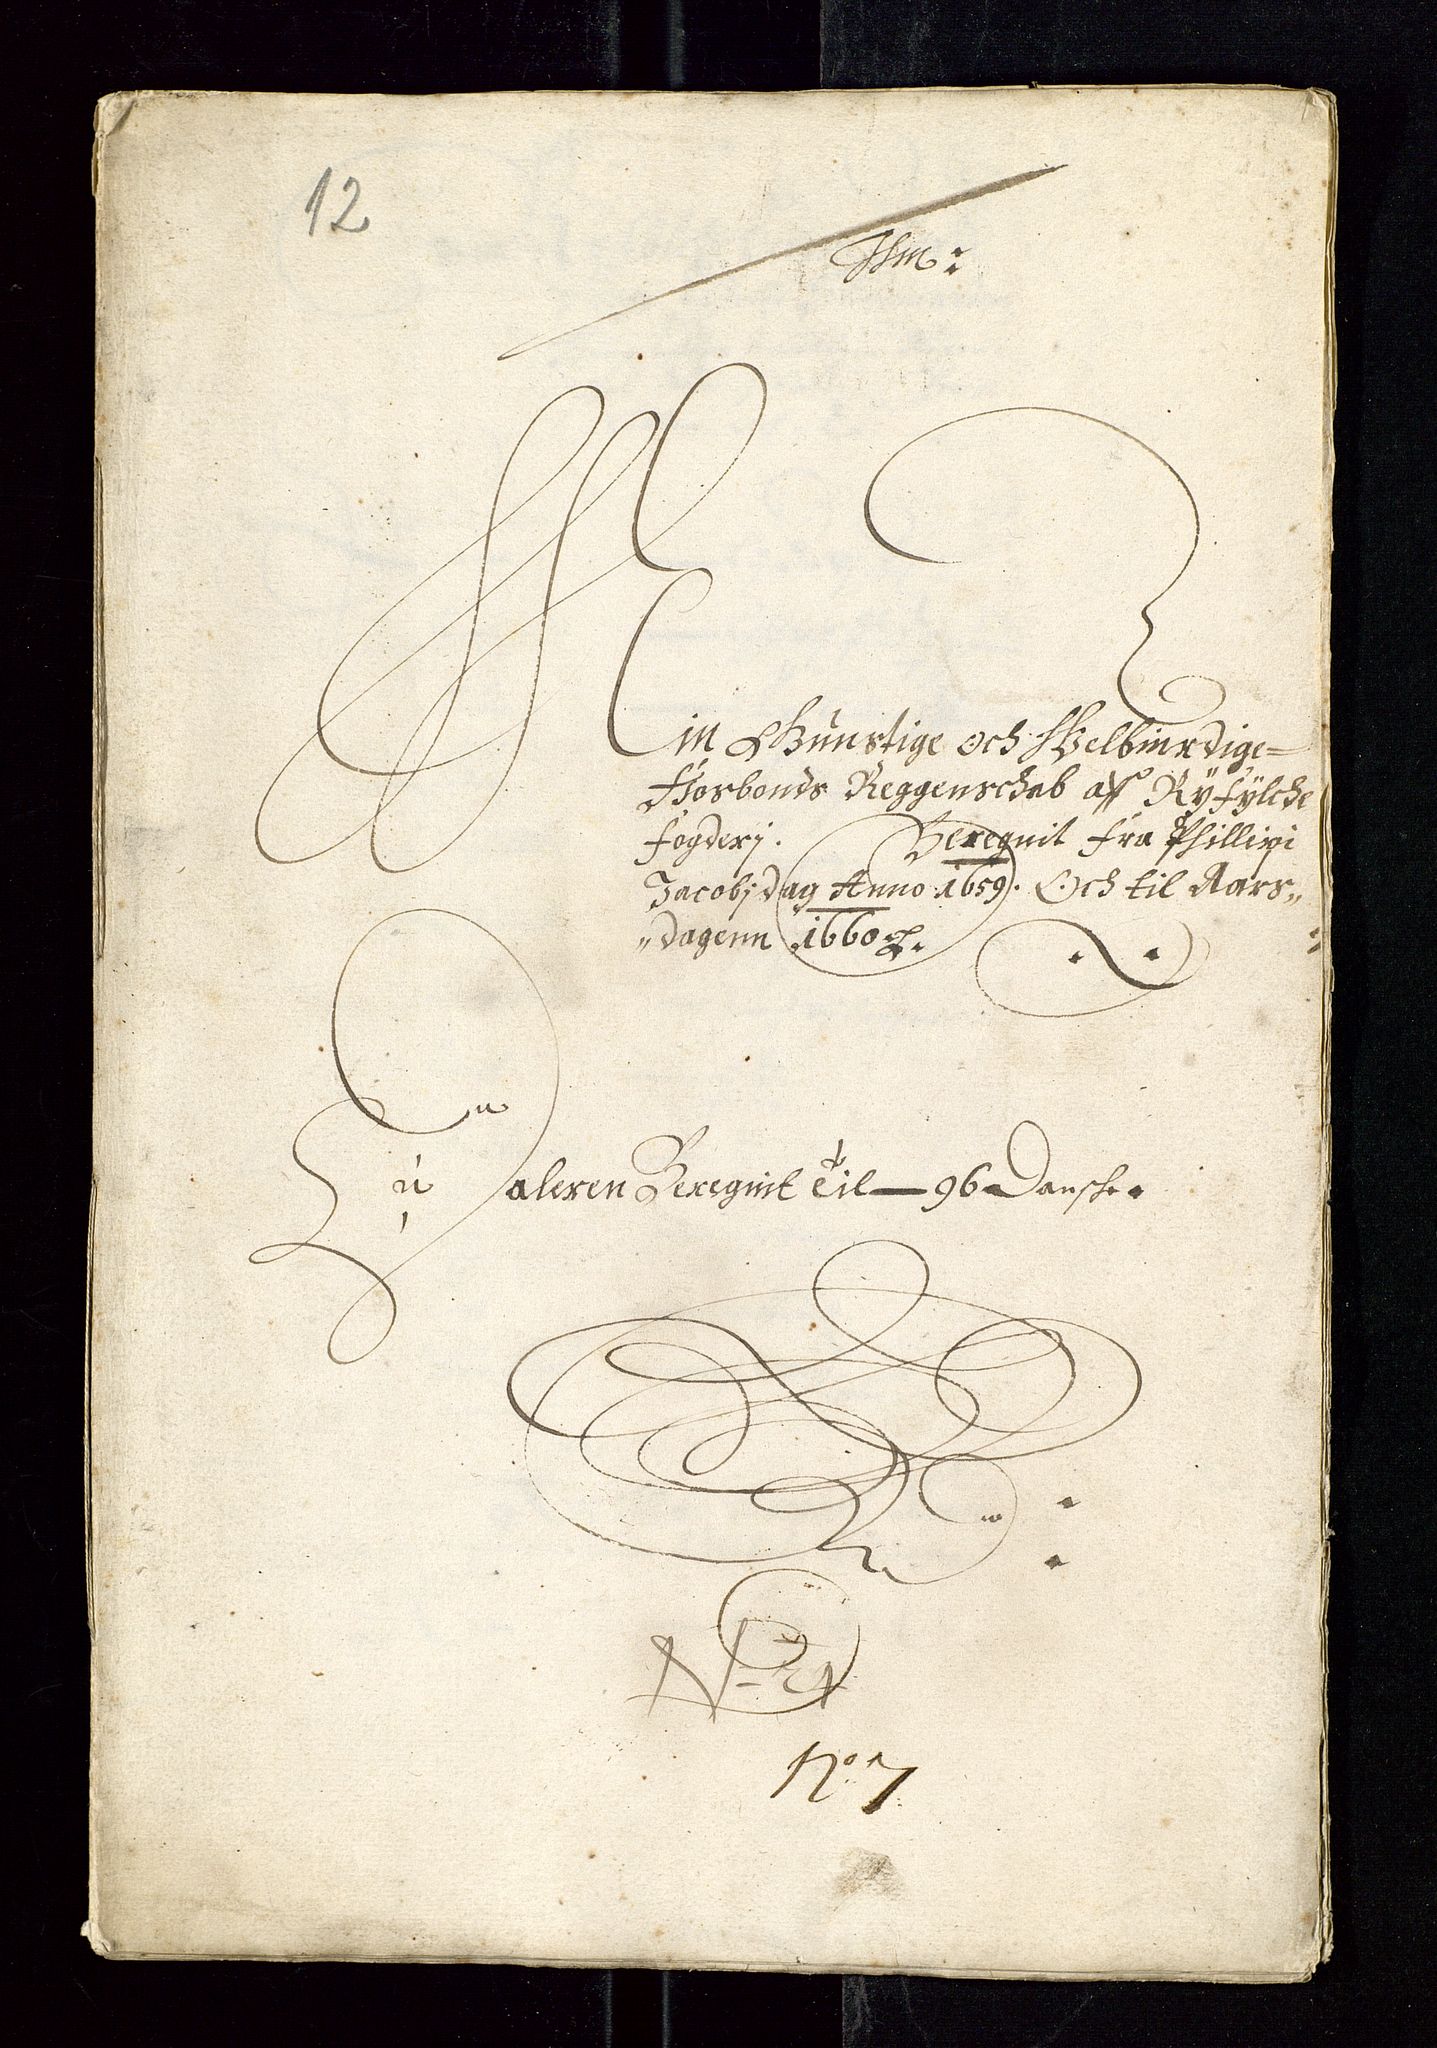 12
Min Günstige och Welbiurdige=
Hosbonds Reggenschab aff Ryfylche
fogderj. Beregnit fra Phillipi
Jacobj dag Anno 1659. Och til Aars„
„dagenn 1660
Daleren Beregnit Til — 96 Dansk
No 7